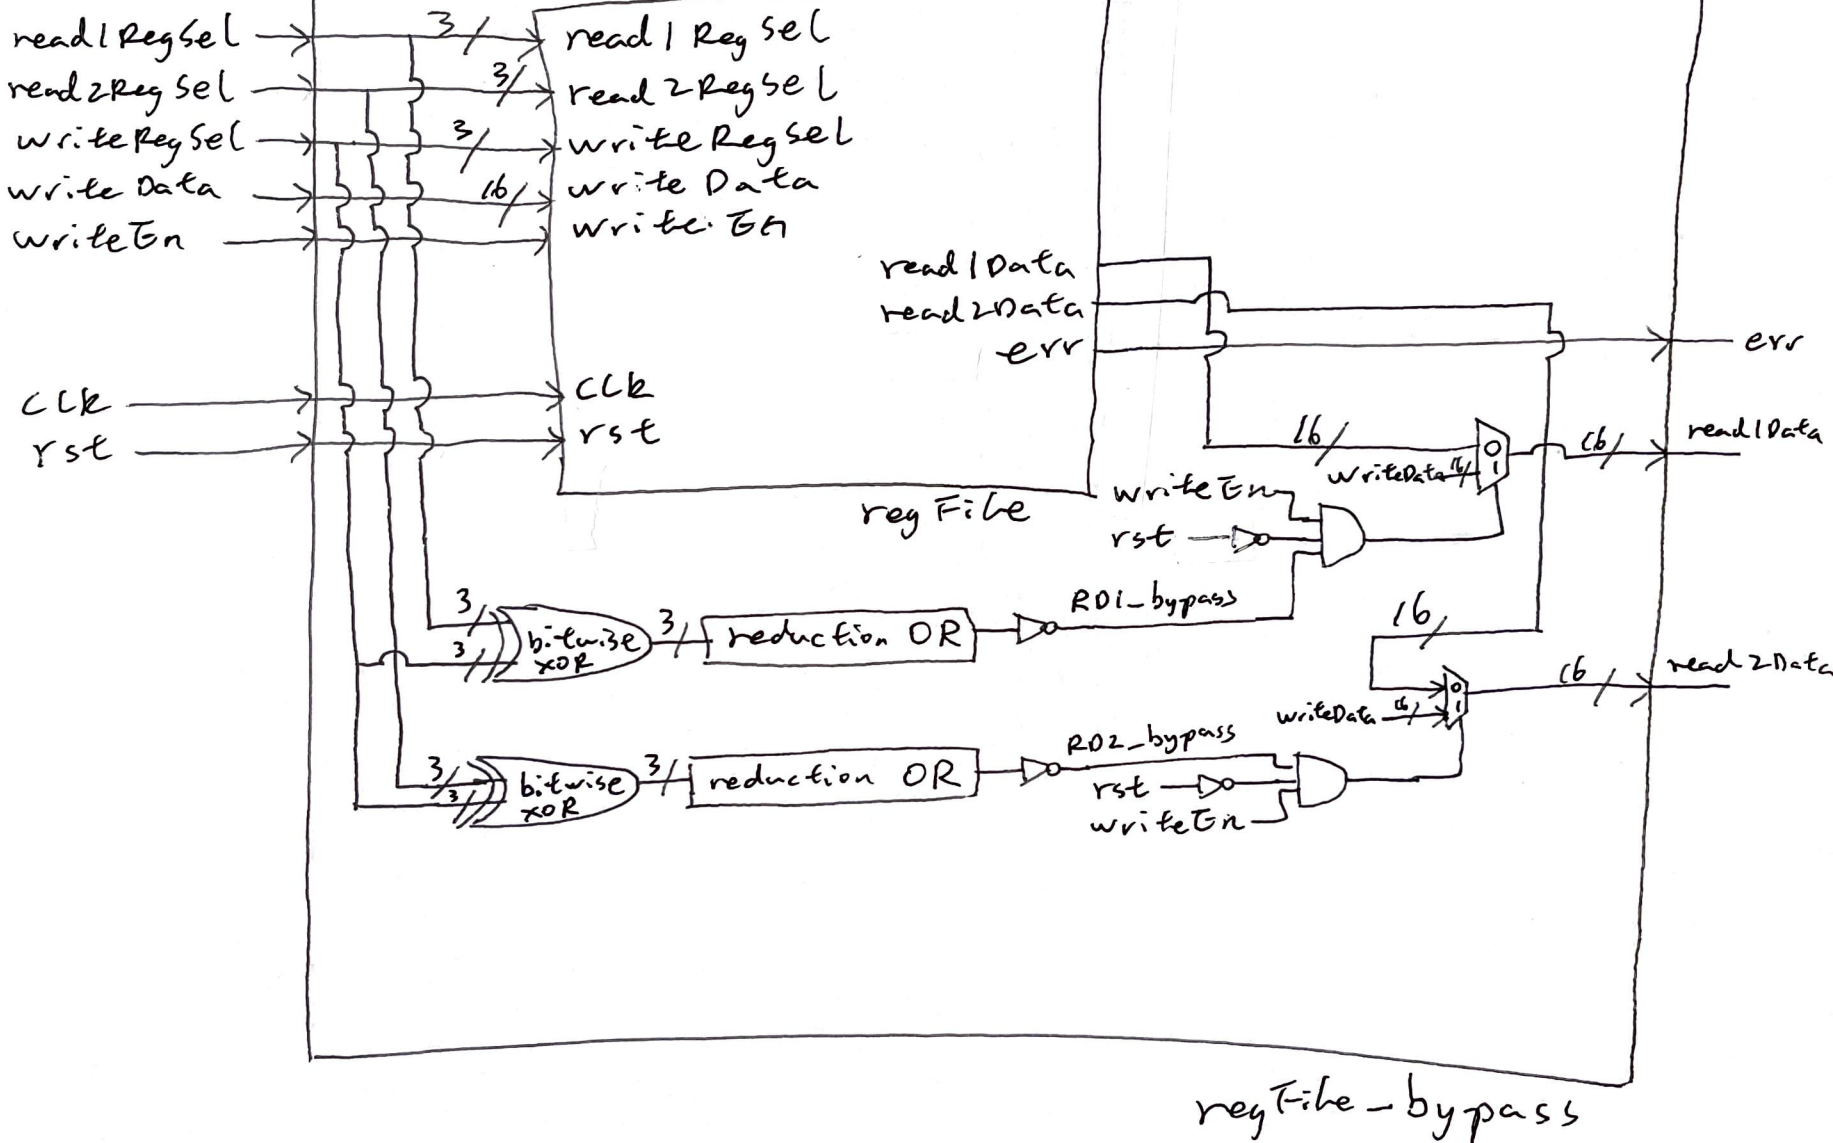 read1RegSel
read2RegSel
writeRegSel
writeData
writeEn
clk
rst
3
3
3
16
read1RegSel
read2RegSel
writeRegSel
write Data
write. En
clk
rst
read1Data
read2Data
err
regFile
err
16
writeData 16
0
1
16
read1Data
writeEn
rst
3
3
bitwise
XOR
3
reduction OR
RD1_bypass
16
0
1
writeData 16
16
read2Data
3
3
bitwise
XOR
3
reduction OR
RD2_bypass
rst
writeEn
regFile_bypass